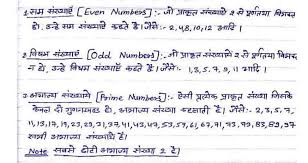 1. सम संख्याएँ [Even Numbers] :- जो प्राकृत संख्याएँ 2 से पूर्णतया विभक्त
हो, उन्हें सम संख्याएँ कहते हैं। जैसे:- 2,4,8,10,12 आदि।
2. विषम संख्याएँ [Odd Numbers] :- जो प्राकृत संख्याएँ 2 से पूर्णतया विभक्त
न हो, उन्हें विषम संख्याएँ कहते हैं। जैसे:- 1,3,5,7,9,11 आदि।
3. अभाज्य संख्याएँ [Prime Numbers] :- ऐसी प्रत्येक प्राकृत संख्या जिसके
केवल दो गुणनखण्ड हो, अभाज्य संख्या कहलाती हैं। जैसे:- 2,3,5,7,
11,13,17,19,23,29,31,37,41,43,47,53,59,61,67,71,73,79,83,89,97
सभी अभाज्य संख्याएँ हैं।
Note सबसे छोटी अभाज्य संख्या 2 है।